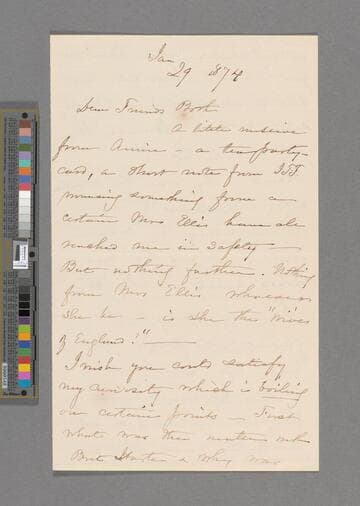 Jan
29 1874
Dear Friends Both
A little missive
from Annie – a tea party
card, a short note from JTF
promising something from a
certain Mrs Ellis have all
reached me in safety –
But nothing further. Nothing
from Mrs Ellis whosoever
she be – is she the "Wives
of England!" –
I wish you could satisfy
my curiosity which is boiling
on certain points – First
what was the matter with
Bret Harte & why was